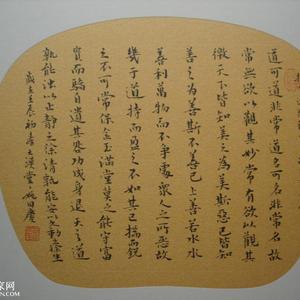 道可道非常道名可名非常名故
常無欲以觀其妙常有欲以觀其
徼天下皆知美之為美斯惡已皆知
善之為善斯不善已上善若水水
善利萬物而不爭處眾人之所惡故
幾于道持而盈之不如其已揣而銳
之不可常保金玉滿堂莫之能守富
貴而驕自遺其咎功成身退天之道
孰能濁以止靜之徐清孰能安以久動之徐生
歲在壬辰初春
家网
.com